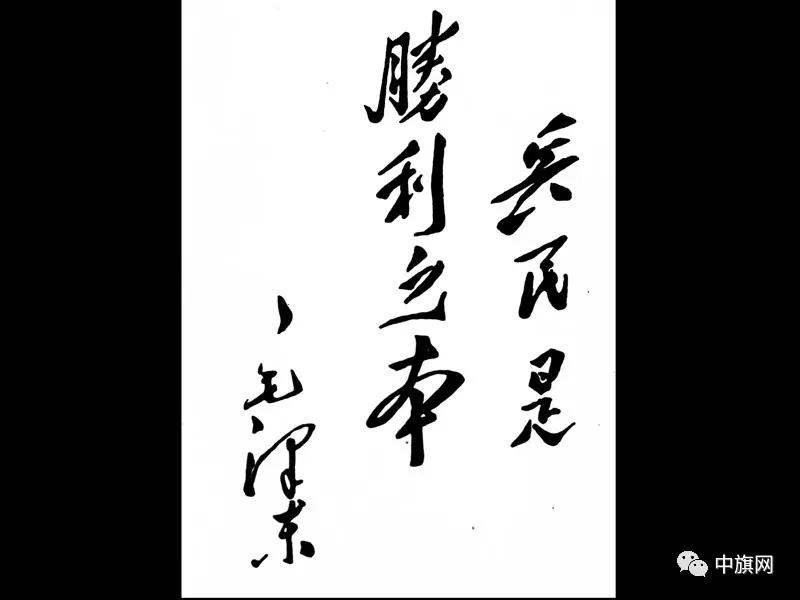 兵民是
勝利之本
毛澤东
中旗网